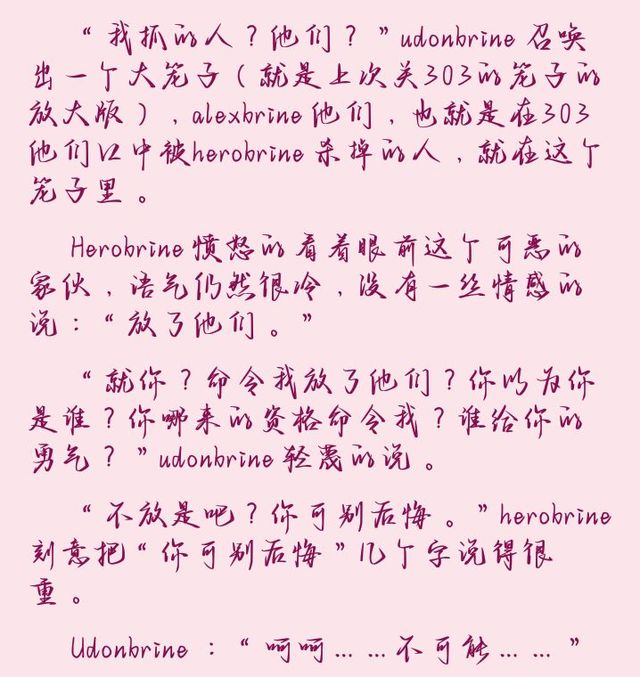 “我抓的人？他们？”udonbrine召唤
出一个大笼子（就是上次关303的笼子的
放大版），alexbrine他们，也就是在303
他们口中被herobrine杀掉的人，就在这个
笼子里。
Herobrine愤怒的看着眼前这个可恶的
家伙，语气仍然很冷，没有一丝情感的
说：“放了他们。”
“就你？命令我放了他们？你以为你
是谁？你哪来的资格命令我？谁给你的
勇气？”udonbrine轻蔑的说。
“不放是吧？你可别后悔。”herobrine
刻意把“你可别后悔”几个字说得很
重。
Udonbrine：“呵呵……不可能……”